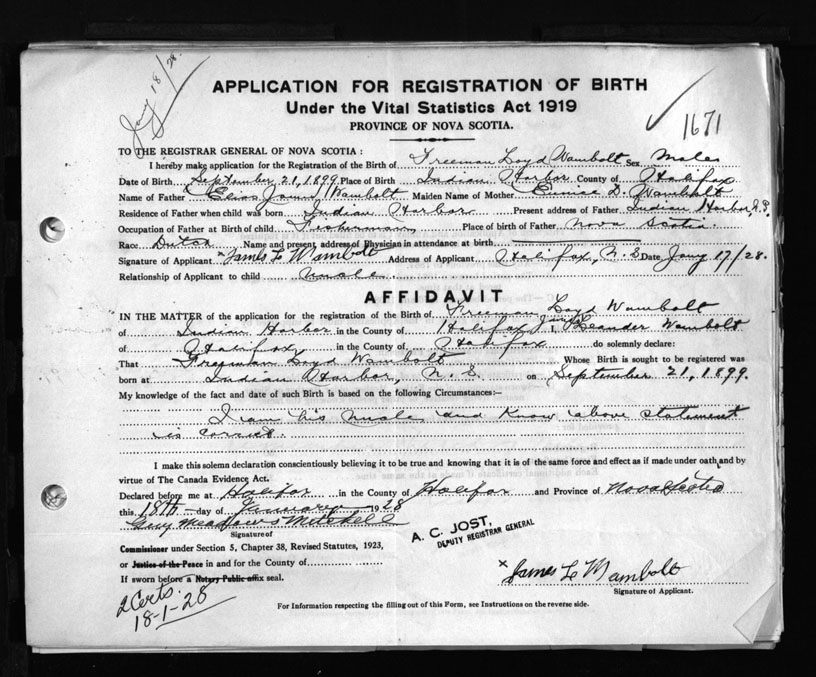 Jany 18/28.
APPLICATION FOR REGISTRATION OF BIRTH
Under the Vital Statistics Act 1919
PROVINCE OF NOVA SCOTIA.
1671
TO THE REGISTRAR GENERAL OF NOVA SCOTIA:
I hereby make application for the Registration of the Birth of Freeman Loyd Wambolt Sex Male
Date of Birth September 21, 1899 Place of Birth Indian Harbor County of Halifax
Name of Father Wambolt Maiden Name of Mother Eunice D. Wambolt
Residence of Father when child was born Indian Harbor Present address of Father Indian Harbor,
Occupation of Father at Birth of child Fisherman Place of birth of Father Nova Scotia.
Race Dutch Name and present address of Physician in attendance at birth
Signature of Applicant x James L Wambolt Address of Applicant Halifax, N.S Date Jany 17/28.
Relationship of Applicant to child Unale
AFFIDAVIT
IN THE MATTER of the application for the registration of the Birth of Freeman Loyd Wambolt
of Indian Harbor in the County of Halifax I, James Leander Wambolt
of Halifax, in the County of Halifax do solemnly declare:
That Freeman Loyd Wambolt Whose Birth is sought to be registered was
born at Indian Harbor, N.S. on September 21, 1899.
My knowledge of the fact and date of such Birth is based on the following Circumstances:—
I am his Unale, and Know above statement
is correct.
I make this solemn declaration conscientiously believing it to be true and knowing that it is of the same force and effect as if made under oath, and by
virtue of The Canada Evidence Act.
Declared before me at Halifax in the County of Halifax and Province of Nova Scotia
this 18th day of January 1928
Guy Meadows Mitchell
Signature of
A. C. JOST,
DEPUTY REGISTRAR GENERAL
Commissioner under Section 5, Chapter 38, Revised Statutes, 1923,
or Justice of the Peace in and for the County of
If sworn before a Notary Public affix seal.
x James L Wambolt
Signature of Applicant.
2 Certs.
18-1-28
For Information respecting the filling out of this Form, see Instructions on the reverse side.